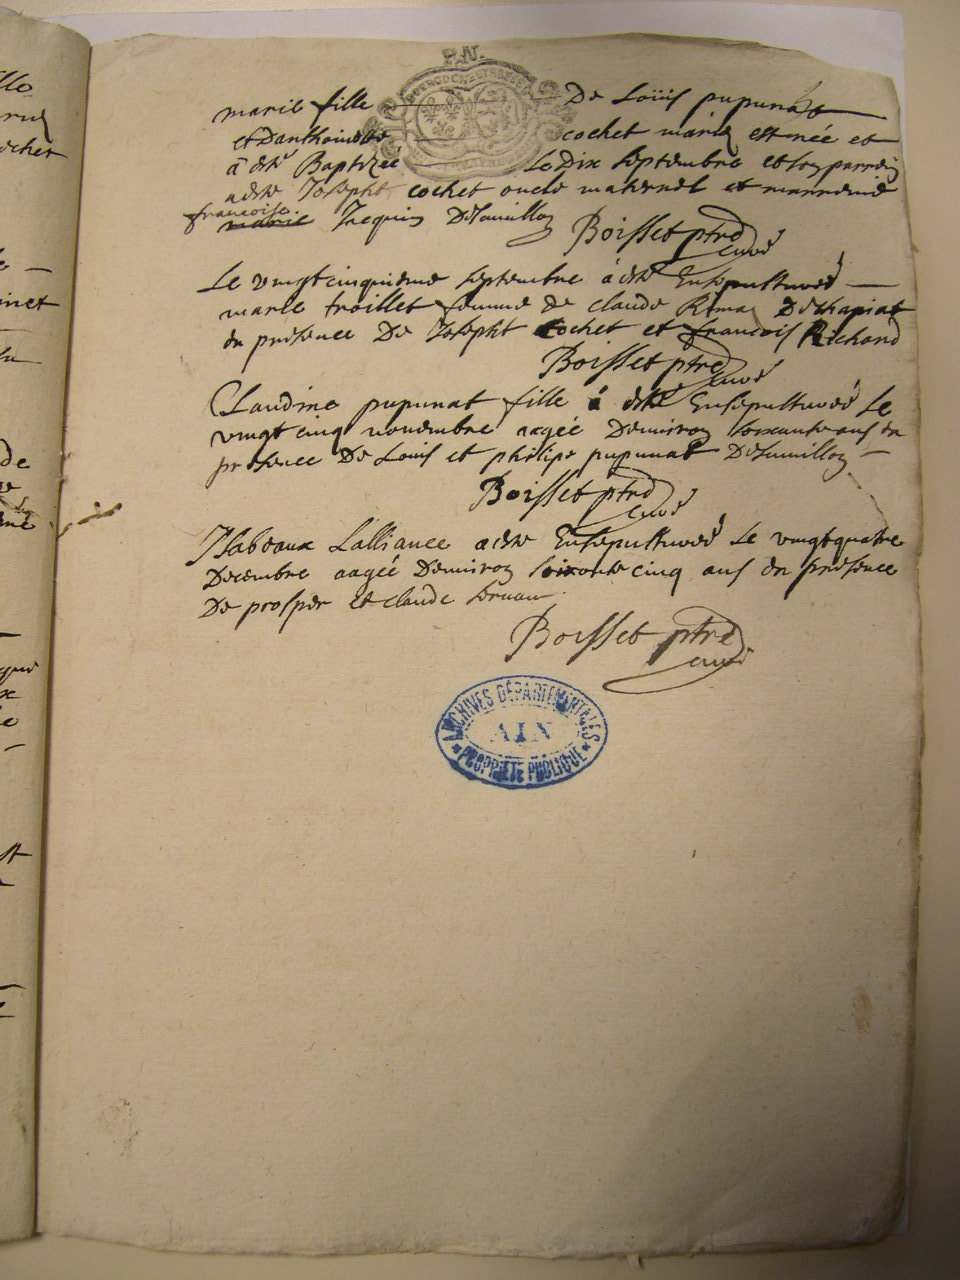 P.N.
marie fille De Loüis pupunat
et Danthoinette cochet mariés est née et
à esté Baptizée Le Dix septembre et son parrein
a este Josepht cochet oncle maternel et marreine
francoise
marie Jacquin De
Boisset ptre
curé
Le vingtcinquieme septembre à esté Ensepulturée
marie troillet femme de claude
en présence De Josepht Cochet et francois Richard
Boisset ptre
curé
Claudine pupunat fille à esté Ensepulturée Le
vingt cinq novembre aagée Denviron soixante ans en
présence De Louis et philipe pupunat
Boisset ptre
curé
Isabeaux Lalliance a esté Ensepulturée Le vingtquatre
Decembre aagée Denviron soixante cinq ans en présence
De prosper et claude
Boisset ptre
curé
ARCHIVES DÉPARTEMENTALES
AIN
PROPRIÉTÉ PUBLIQUE